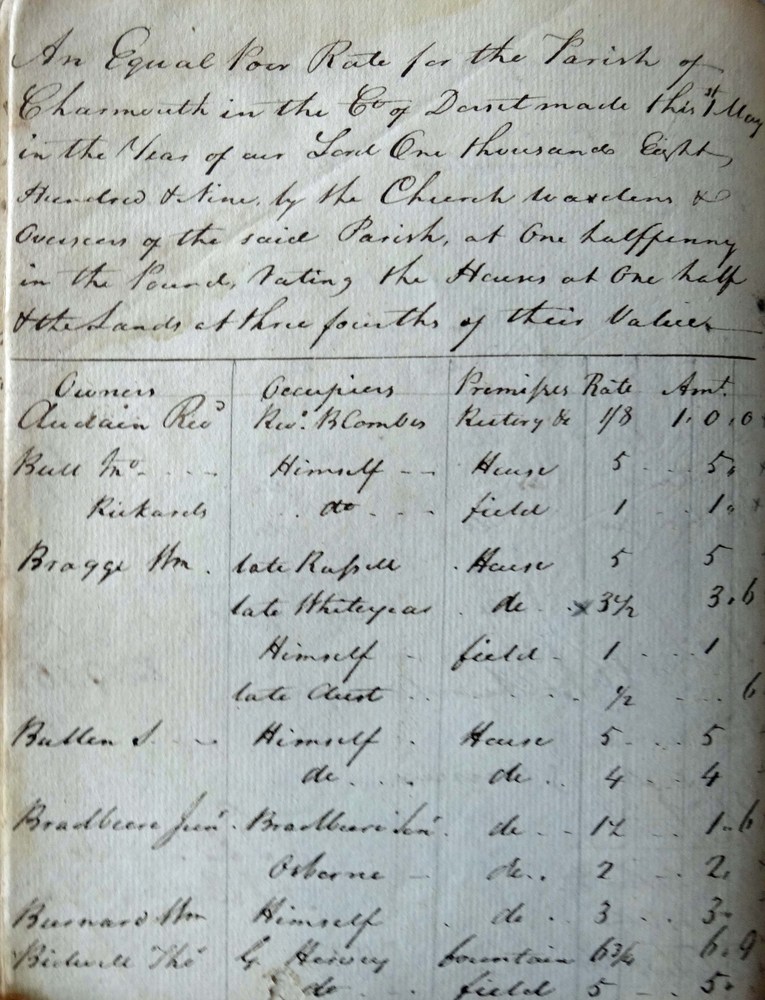 An Equal Poor Rate for the Parish of
Charmouth in the Co of Dorset made this 1st May
in the Year of our Lord One thousand Eight
Hundred & Nine, by the Church wardens &
Overseers of the said Parish, at One halfpenny
in the Pound, Rating the Houses at One half
& the Lands at three fourths of their Value
Owners Occupiers Premises Rate Amt.
Audain Revd Revd. B Combes Rectory &c 1/8 1.0.0
Bull Jno Himself House 5 5
Rickards do field 1 1
Bragge Wm. late Russell House 5 5
late Whiteyear do 3 1/2 3.6
Himself field 1 1
late Aust 1/2 6
Bullen S. Himself House 5 5
do do 4 4
Bradbeere Junr. Bradbeere Senr. do 1 1/2 1.6
Osborne do 2 2
Burnard Wm Himself do 3 3
Bidwell Thos G. Hervey fountain 6 3/4 6.9
do field 5 5